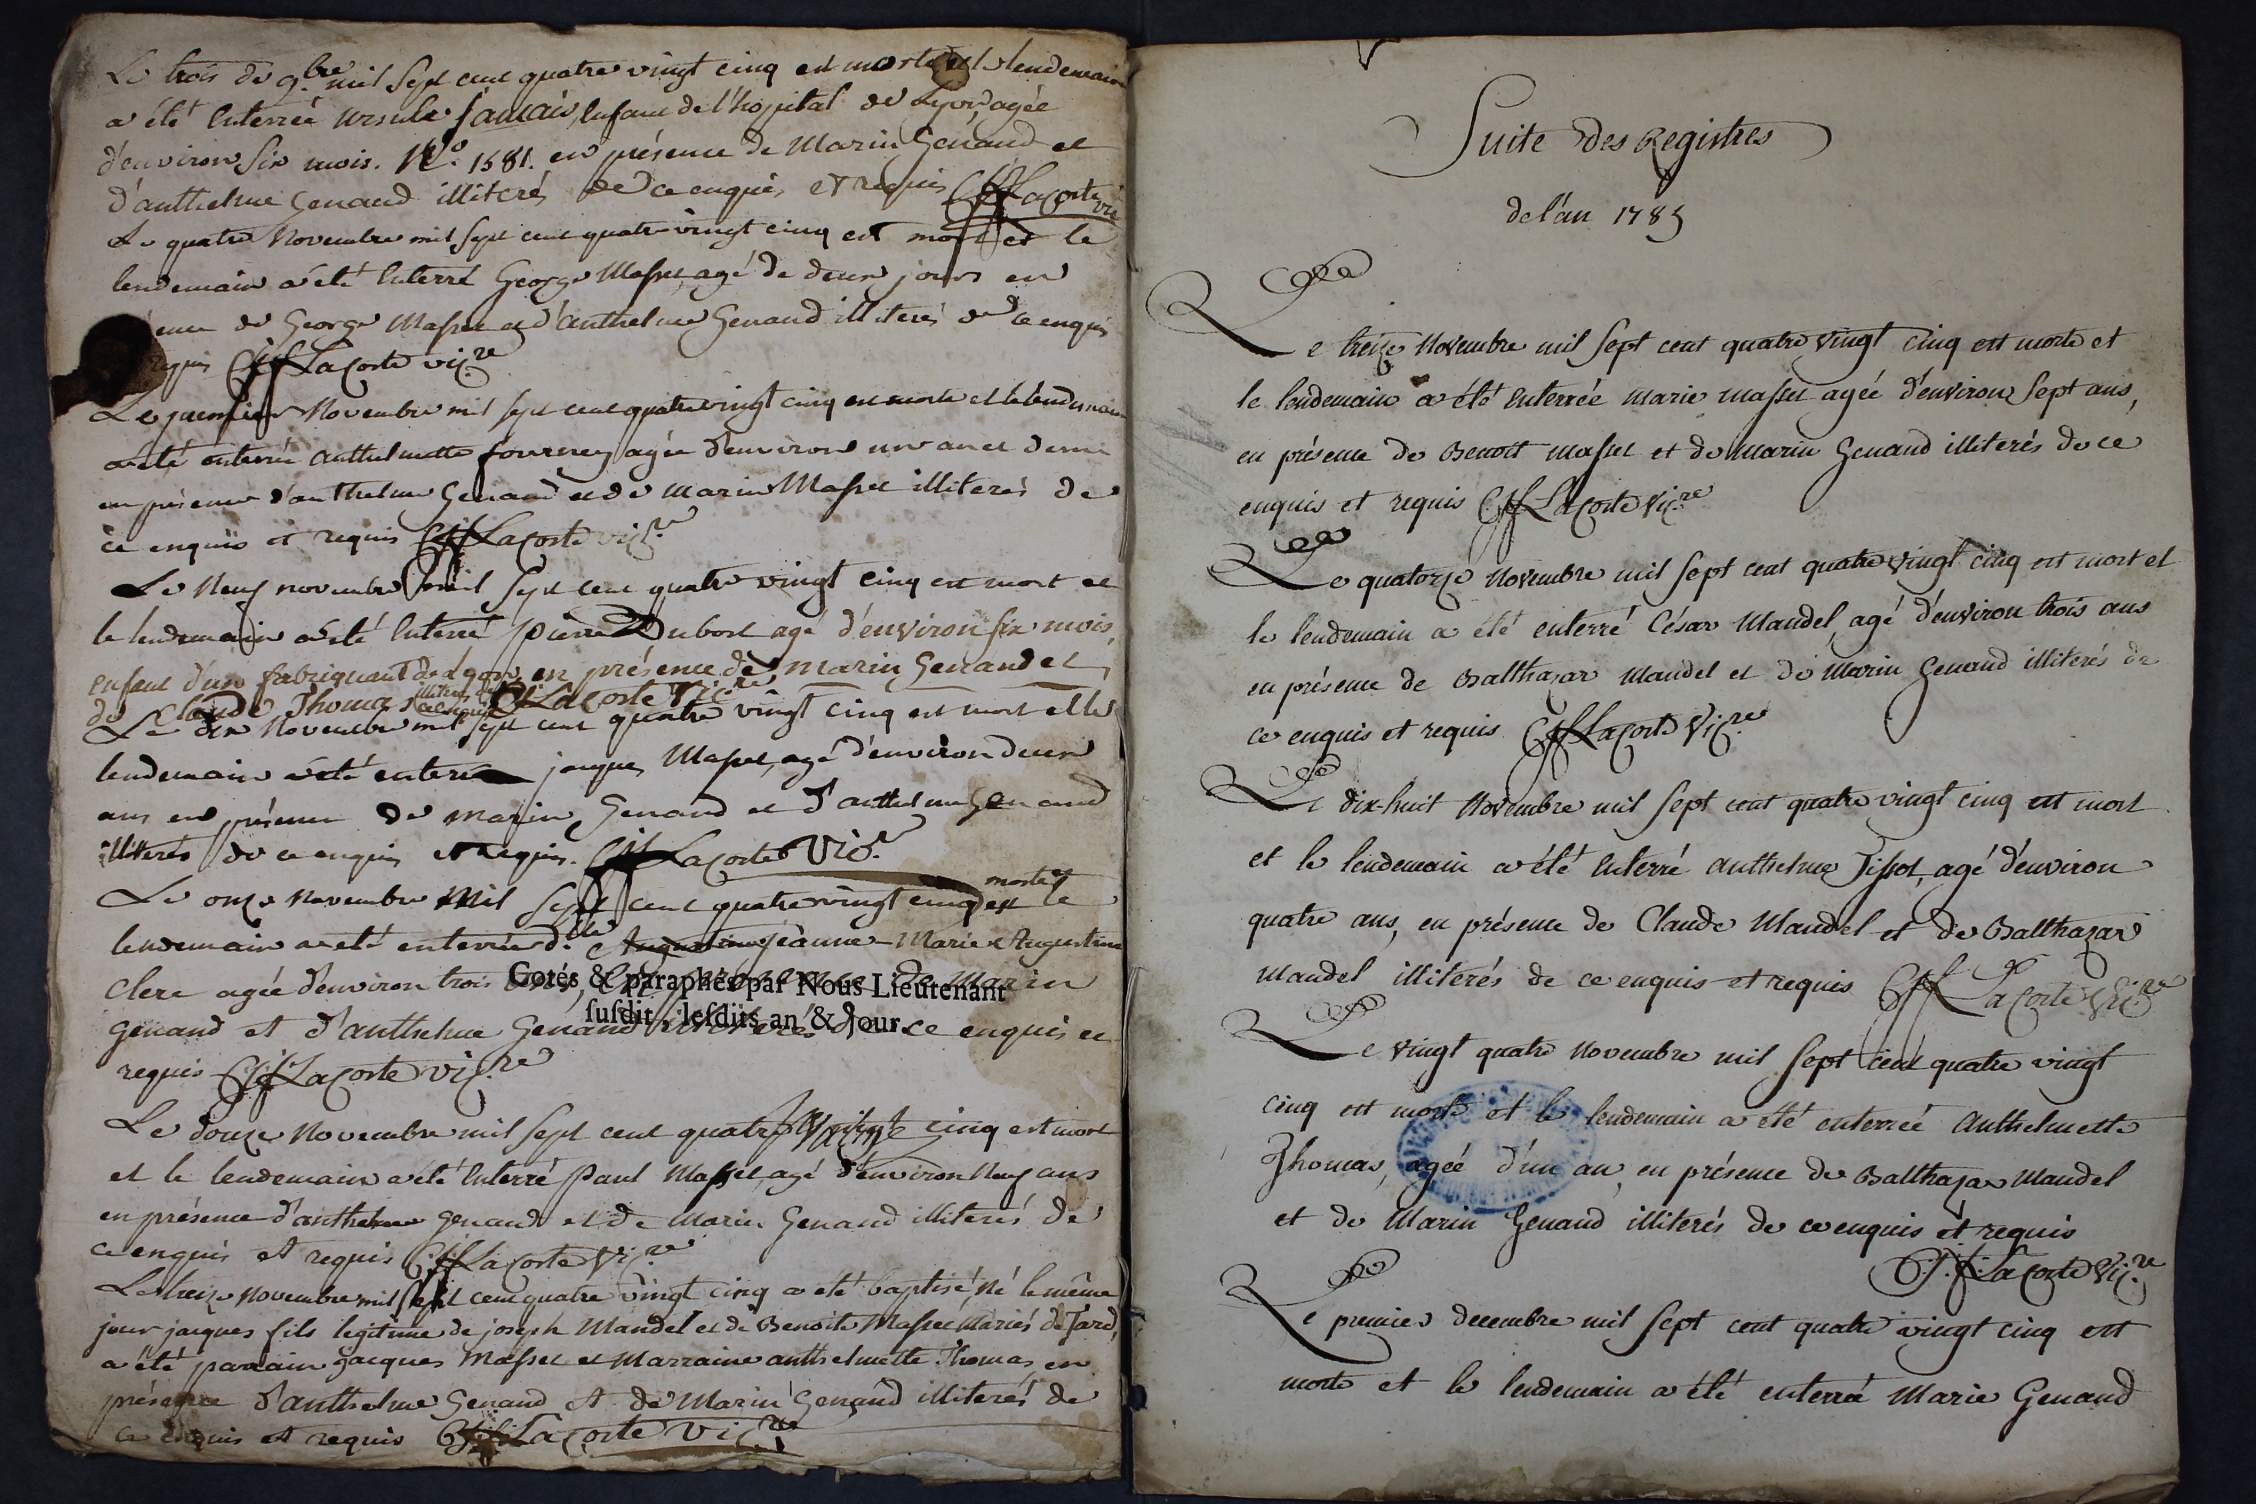 Le trois de 9.bre mil sept cent quatre vingt cinq est morte et le lendemain
a été enterrée ursule enfant de l'hopital de Lyon, agée
d'environ six mois. N.o 1581. en présence de Marin Genaud et
d'anthelme Genaud illiterés de ce enquis et requis Lacoste vic
Le quatre Novembre mil sept cent quatre vingt cinq est mort et le
lendemain a été enterré George Masset, agé de deux jours en
ence de George Masset et d'anthelme Genaud illiterés de ce enquis
requis Lacoste vic.re
Le premier Novembre mil sept cent quatre vingt cinq est morte et le lendemain
a été enterrée anthelmette fourney agée d'environ un an et demi
en présence d'anthelme Genaud et de marin Masset illiterés de
ce enquis et requis Lacoste vic.re
Le Neuf novembre mil sept cent quatre vingt cinq est mort et
le lendemain a été enterré pierre Dubost agé d'environ six mois,
enfant d'un fabriquant de Lyon, en présence de marin Genaud et
de Claude Thomas illiterés de ce enquis Lacoste Vic.re
Le dix Novembre mil sept cent quatre vingt cinq est mort et le
lendemain a été enterré jacques Masset, agé d'environ deux
ans en présence de marin Genaud et d'anthelme Genaud
illiterés de ce enquis et requis. Lacoste Vic.re
Le onze Novembre Mil sept cent quatre vingt cinq est morte et le
lendemain a été enterrée d.lle Augustine jeanne Marie Augustine
Clerc agée d'environ trois ans, en présence de Marin
Cotés & paraphés par Nous Lieutenant
genaud et d'anthelme Genaud illiterés de ce enquis et
susdit, lesdits an & jour.
requis Lacoste vic.re
Le douze Novembre mil sept cent quatre vingt cinq est mort
et le lendemain a été enterré Paul Masset, agé d'environ Neuf ans
en présence d'anthelme Genaud et de Marin Genaud illiterés de
ce enquis et requis Lacoste Vic.re
Le treize Novembre mil sept cent quatre vingt cinq a été baptisé, Né le même
jour jacques fils legitime de joseph Mandel et de Benoite Masset mariés de Jard,
a été parrain jacques Masset et Marraine anthelmette Thomas, en
présence d'anthelme Genaud et de Marin Genaud illiterés de
ce enquis et requis Lacoste Vic.re
Suite des Registres
de l'an 1785
Le treize Novembre mil sept cent quatre vingt cinq est morte et
le lendemain a été enterrée marie masset agée d'environ sept ans,
en présence de Benoit masset et de Marin Genaud illiterés de ce
enquis et requis Lacoste Vic.re
Le quatorze Novembre mil sept cent quatre vingt cinq est mort et
le lendemain a été enterré César Mandel, agé d'environ trois ans
en présence de Balthazar Mandel et de Marin Genaud illiterés de
ce enquis et requis Lacoste Vic.re
Le dix-huit Novembre mil sept cent quatre vingt cinq est mort
et le lendemain a été enterré anthelme Tissot, agé d'environ
quatre ans, en présence de Claude Mandel et de Balthazar
Mandel illiterés de ce enquis et requis Lacoste Vic.re
Le vingt quatre Novembre mil sept cent quatre vingt
cinq est morte et le lendemain a été enterrée Anthelmette
Thomas, agée d'un an, en présence de Balthazar Mandel
et de Marin Genaud illiterés de ce enquis et requis
Lacoste Vic.re
Le premier decembre mil sept cent quatre vingt cinq est
morte et le lendemain a été enterrée Marie Genaud